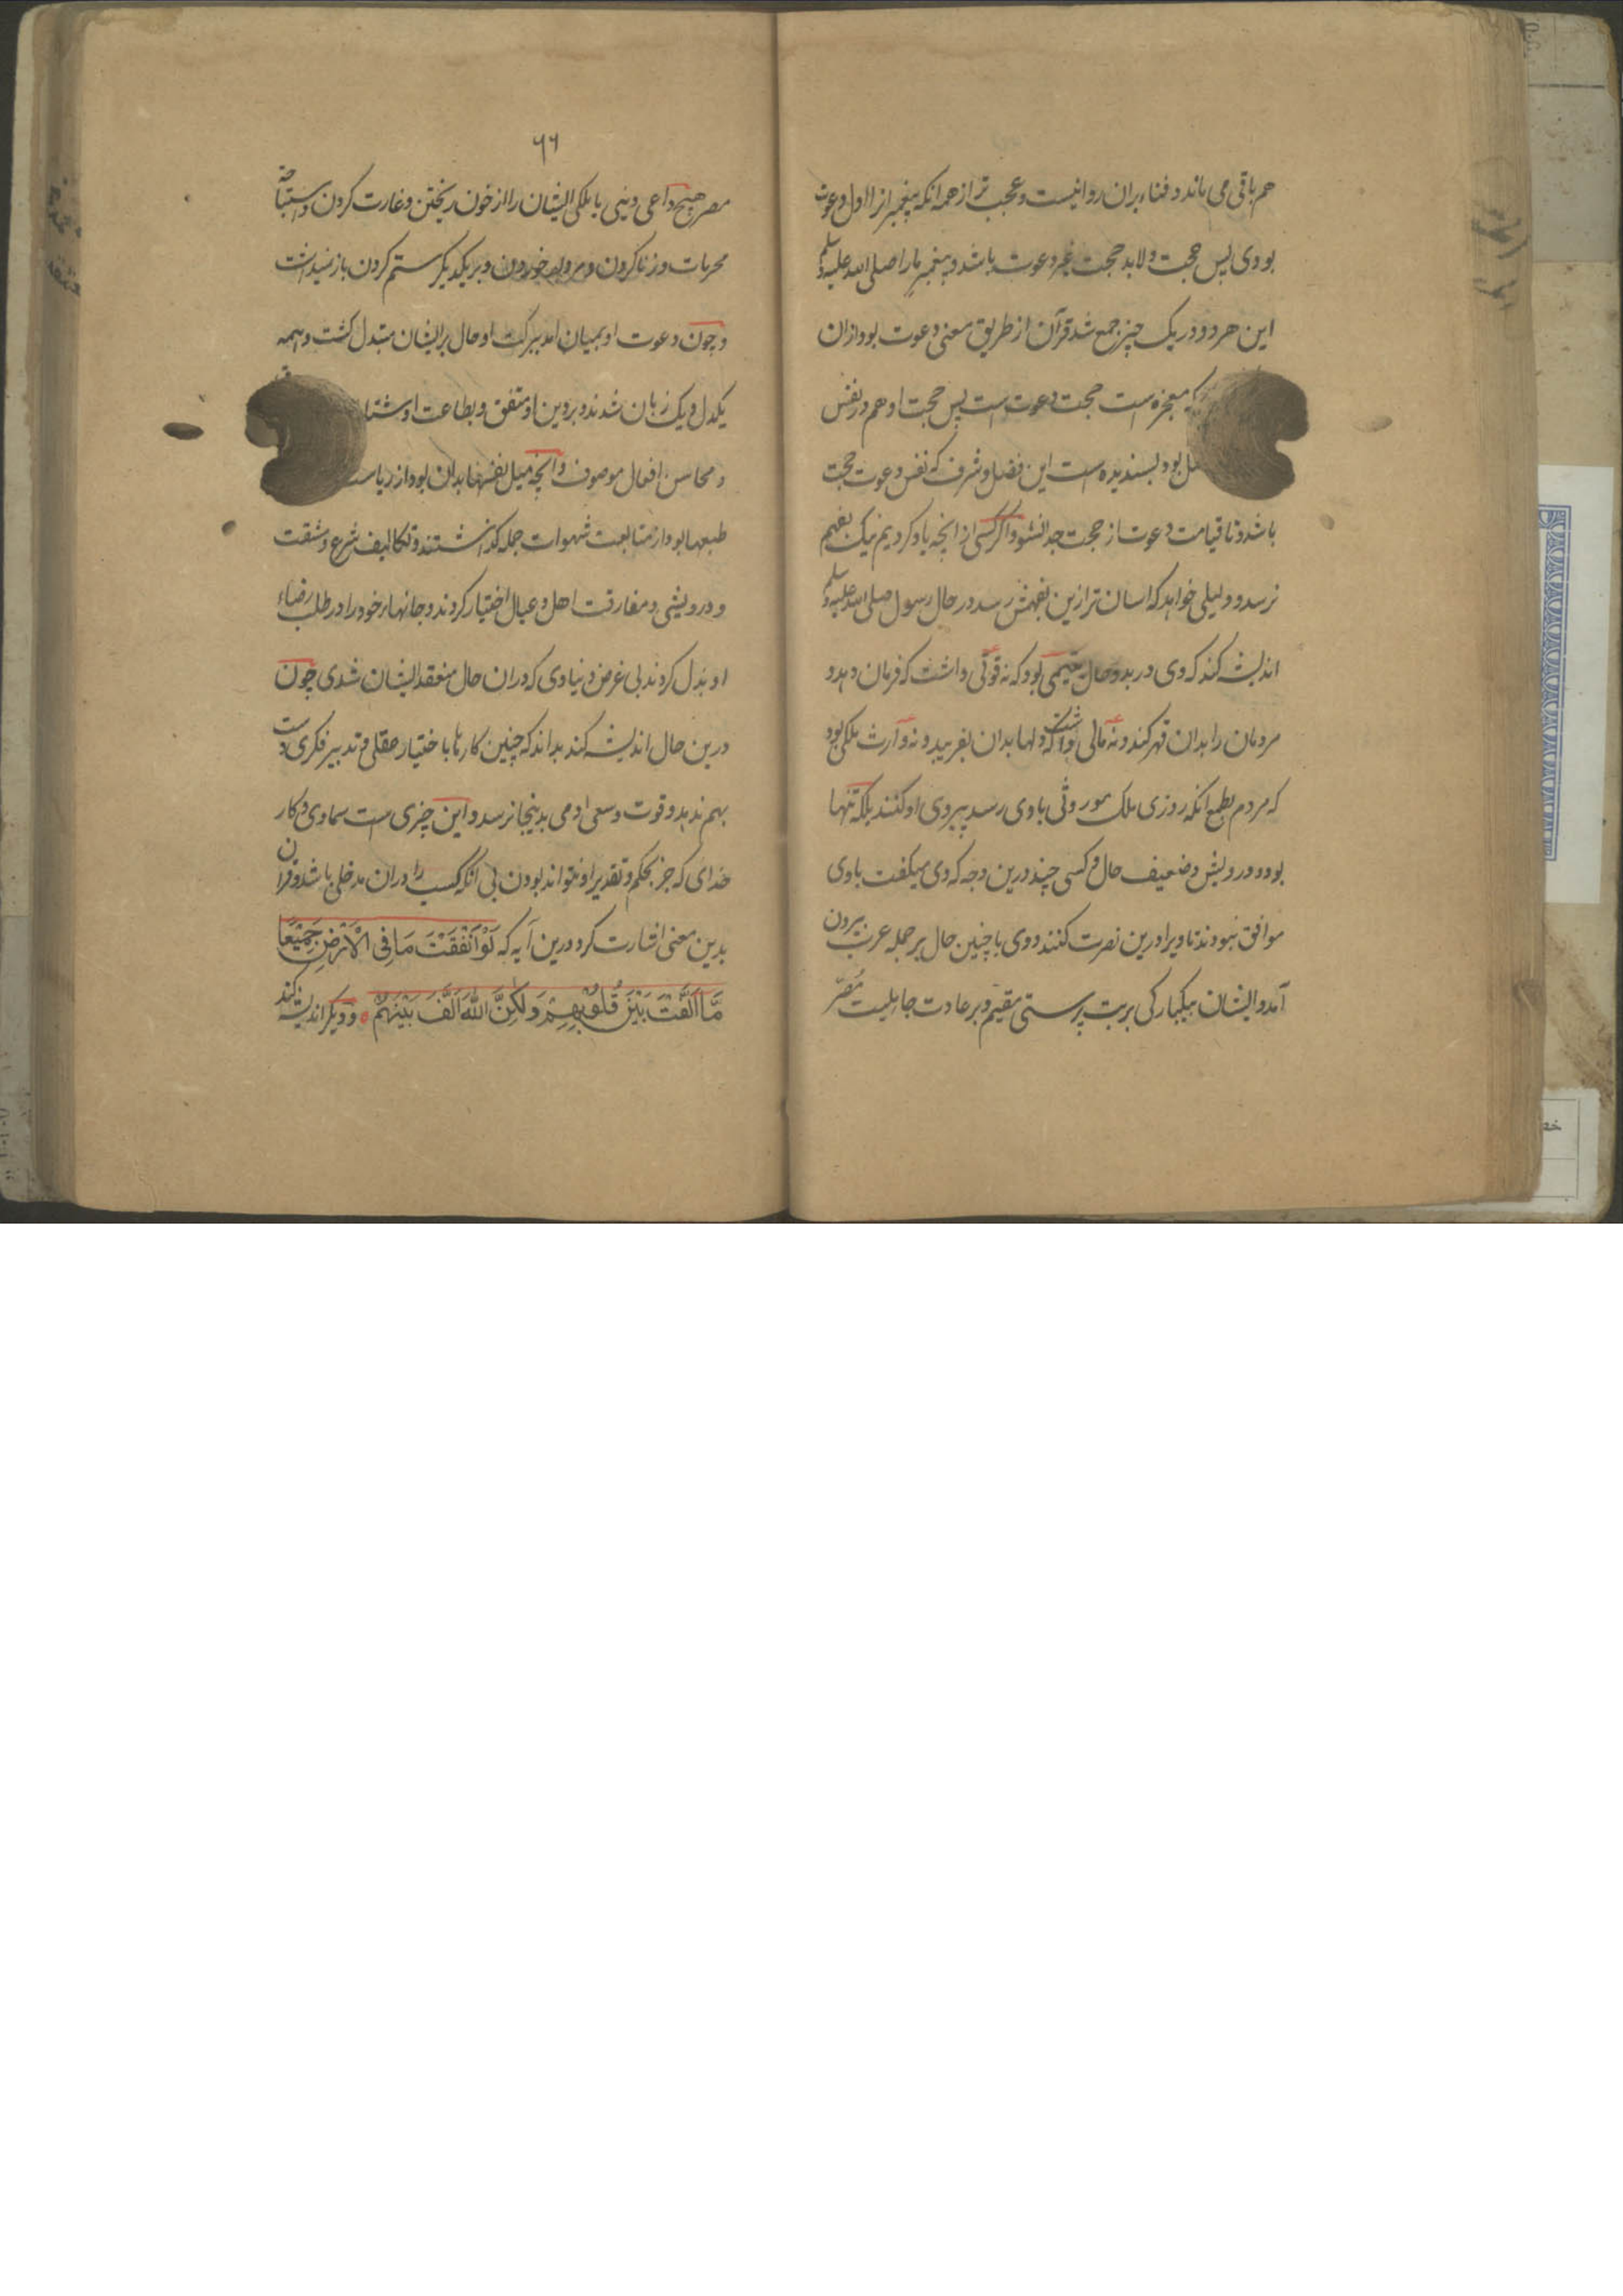 هم باقی می ماند و فناء بران روا نیست و عجب تر از همه انکه پیغمبرانرا اول دعوت
بودی پس حجت و لابد حجت غیر دعوت باشد و پیغمبر ما را صلی الله علیه وسلم
این هر دو در یک چیز جمع شد قرآن از طریق معنی دعوت بود و از ان
که معجزه است حجت دعوت است پس حجت او هم در نفس
بود و بسندیده است این فضل و شرف که نفس دعوت حجت
باشد و تا قیامت دعوت از حجت جدا نشود و اگر کسی از انچه یاد کردیم نیک بفهم
نرسد و دلیلی خواهد که اسان تر ازین بفهمش رسد در حال رسول صلی الله علیه وسلم
اندیشه کند که وی در بدو حال یتیمی بود که نه قوتی داشت که فرمان دهد و
مردمان را بدان قهر کند و نه مالی داشت که دلها بدان بفریبد و نه وارث ملکی بود
که مردم بطمع انکه روزی ملک موروثی باوی رسد پیروی او کنند بلکه تنها
بود و درویش و ضعیف حال و کسی چند درین وجه که وی میکفت باوی
موافق نبودند تا ویرا درین نصرت کنند و وی با چنین حال بر جمله عرب بیرون
آمد و ایشان بیکبارکی بر بت پرستی مقیم و بر عادت جاهلیت مُصرّ
۶۶
مصر هیچ داعی دینی یا ملکی ایشان را از خون ریختن و غارت کردن و استباحة
محرمات و زنا کردن و مردار خوردن و بر یکدیکر ستم کردن باز نمیداشت
و چون دعوت او بمیان امد ببرکت او حال بر ایشان متبدل کشت و همه
یکدل و یک زبان شدند و بر دین او متفق و بطاعت او مشتاق
و محاسن افعال موصوف و انچه میل نفسها بدان بود از ریاست
طبعها بود از متابعت شهوات جمله کذاشتند و تکالیف شرع و مشقت
و درویشی و مفارقت اهل و عیال اختیار کردند و جانهاء خود را در طلب رضاء
او بذل کردند بی غرض دنیاوی که دران حال منعقد ایشان شدی چون
درین حال اندیشه کند بداند که چنین کارها با ختیار عقلی و تدبیر فکری دست
بهم ندهد و قوت و سعی ادمی بدینجا نرسد و این چیزی است سماوی و کار
خدای که جز بحکم و تقدیر او نتواند بودن بی انکه کسب را دران مدخلی باشد و قران
بدین معنی اشارت کرد درین آیه که لَوْ اَنْفَقْتَ مَا فِی الْاَرْضِ جَمِیْعًا
مَّا اَلَّفْتَ بَیْنَ قُلُوْبِهِمْ وَلٰکِنَّ اللهَ اَلَّفَ بَیْنَهُمْ و دیکر اندیشه کند